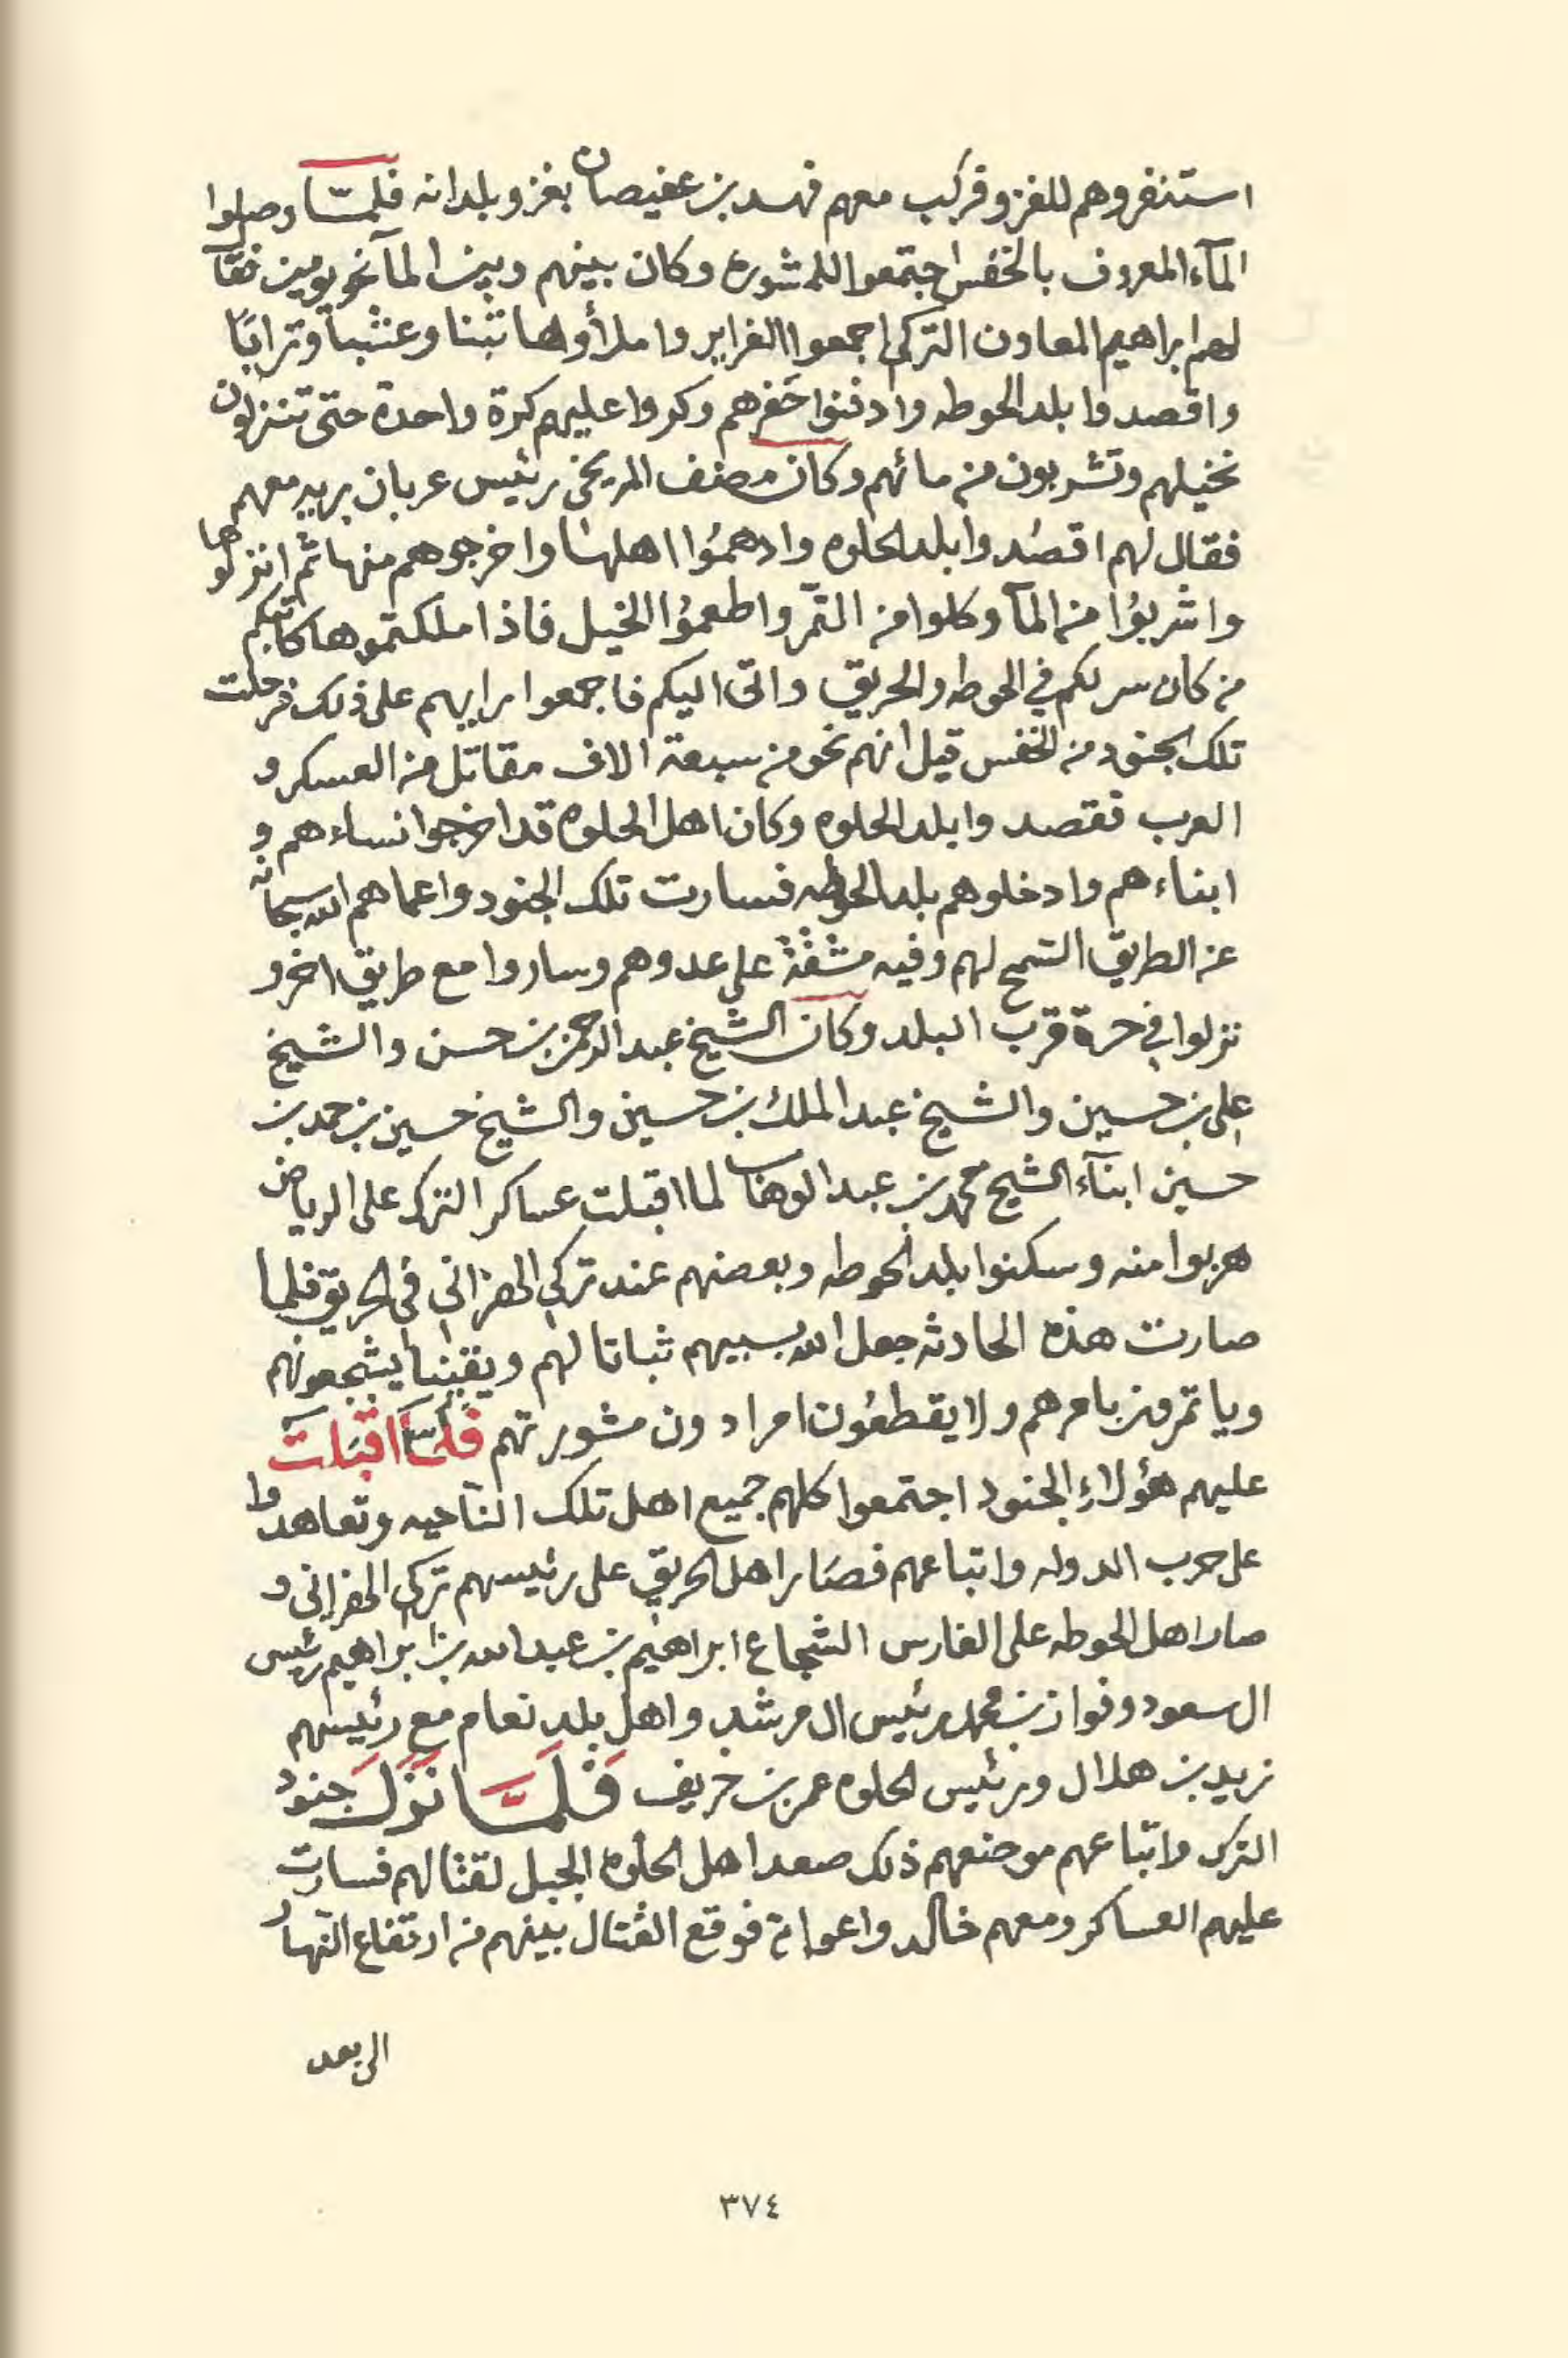 استنفروهم للغزو فركب معهم فهد بن عفيصان بغزو بلدانه فلمّا وصلوا
المآء المعروف بالخفس اجتمعوا للمشوره وكان بينهم وبين المآ نحو يومين فقآل
لهم ابراهيم المعاون التركي اجمعوا الغراير واملأوها تبنا وعشباً وتراباً
واقصدوا بلد الحوطه وادفنوا حَفرهم وكروا عليهم كرة واحدة حتى تنزلون
نخيلهم وتشربون من مائهم وكان مصنف المريخي رئيس عربان بريه معهم
فقال لهم اقصُدوا بلد الحلوه وادهمُوا اهلها واخرجوهم منها ثم انزلوها
واشربُوا من المآ وكلوا من التمّر واطعمُوا الخيل فاذا ملكتموها كاتبكم
من كان سر لكم في الحوطه والحريق واتى اليكم فاجمعوا رايهم على ذلك فرحلت
تلك الجنود من الخفس قيل انهم نحو من سبعة الاف مقاتل من العسكر و
العرب فقصدوا بلد الحلوه وكان اهل الحلوه قد اخرجوا نساءهم و
ابناءهم وادخلوهم بلد الحوطه فسارت تلك الجنود واعماهم الله سبحانه
عن الطريق السّمح لهم وفيه مشقّة على عدوهم وساروا مع طريق اخر و
نزلوا في حرة قرب البلد وكان الشيخ عبد الرحمن بن حسن والشيخ
علي بن حسين والشيخ عبد الملك بن حسين والشيخ حسين بن حمد بن
حسين ابنآء الشيخ محمد بن عبد الوهاب لما اقبلت عساكر الترك على الرياض
هربوا منه وسكنوا بلد الحوطه وبعضهم عند تركي الهزاني في الحريق فلما
صارت هذه الحادثه جعل الله بسببهم ثباتا لهم ويقينا يشجعونهم
وياتمرون بامرهم ولا يقطعُون امرا دون مشورتهم فلمّا اقبَلت
عليهم هؤلاءِ الجنود اجتمعوا كلهم جميع اهل تلك النّاحيه وتعاهدوا
على حرب الدوله واتباعهم فصَار اهل الحريق على رئيسهم تركي الهزاني و
صار اهل الحوطه على الفارس الشجاع ابراهيم بن عبد الله بن ابراهيم رئيس
ال سعود وفواز بن محمد رئيس ال مرشد واهل بلد نعام مع رئيسهم
زيد بن هلال ورئيس الحلوه عمر بن خريف فَلَمّا نَزَلَ جنود
الترك واتباعهم موضعهم ذلك صعد اهل الحلوة الجبل لقتالهم فسارت
عليهم العساكر ومعهم خالد واعوانه فوقع القتال بينهم من ارتفاع النّهار
الى بعد
٣٧٤